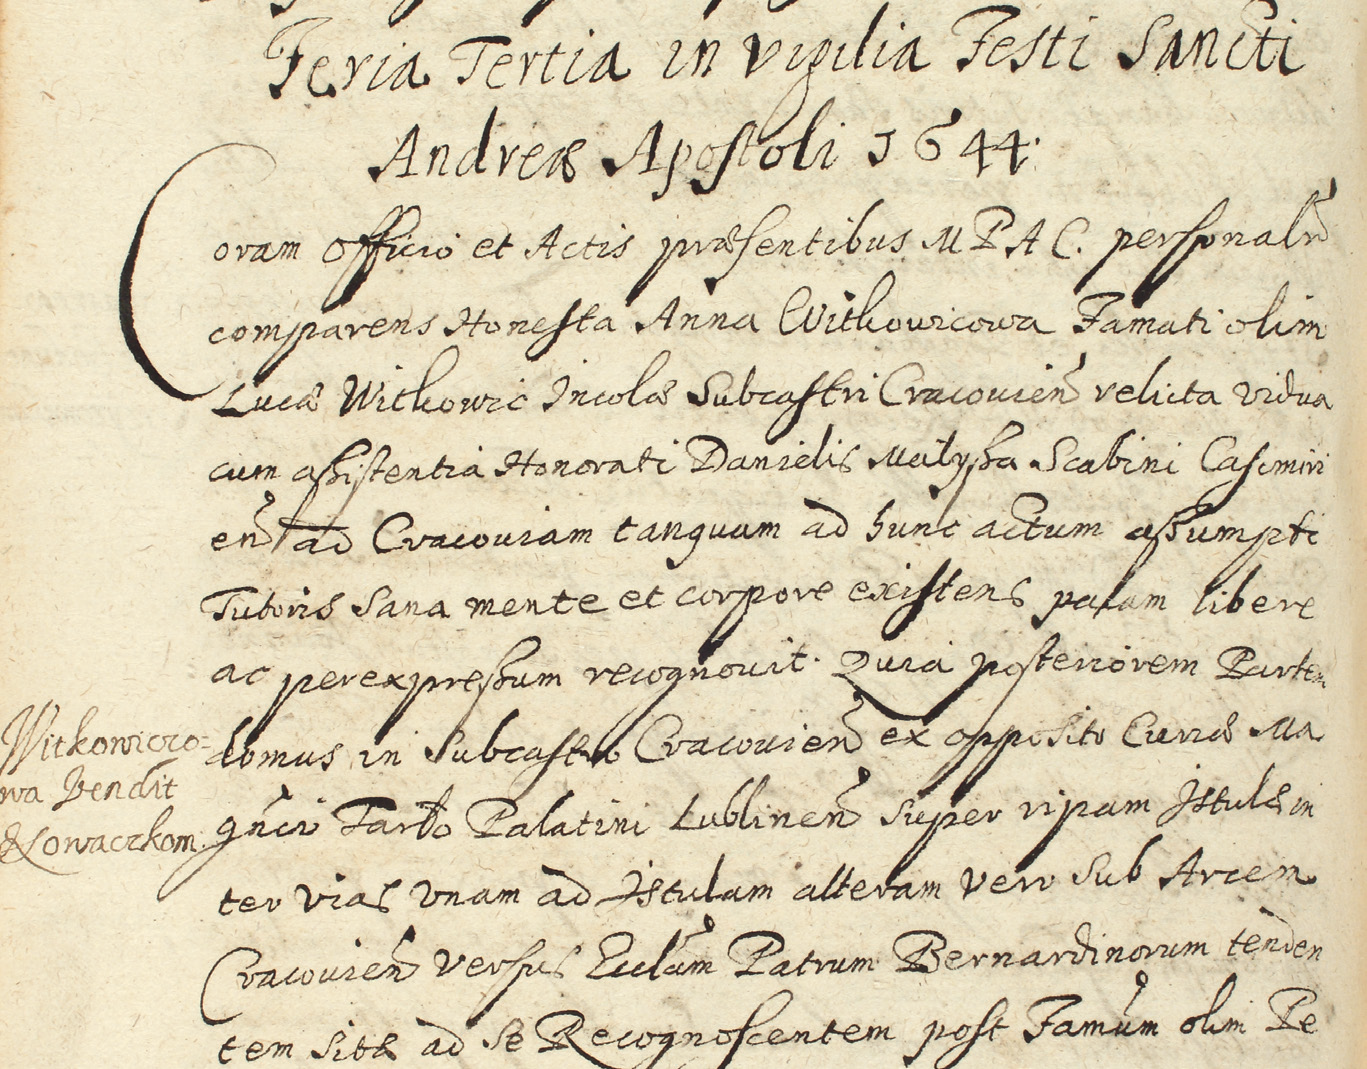 Feria Tertia in vigilia Festi Sancti
Andreæ Apostoli 1644
Coram officio et Actis præsentibus M P A C. personalr
comparens Honesta Anna Witkowicowa Famati olim
Lucæ Witkowic Incolæ Subcastri Cracovien relicta vidua
cum assistentia Honorati Danielis Malyssa Scabini Casimiri
en ad Cracoviam tanquam ad hunc actum assumpti
Tutoris sana mente et corpore existens palam libere
ac perexpressum recognovit. Quia posteriorem Partem
domus in Subcastro Cracovien ex opposito Curiæ Ma
gnci Tarlo Palatini Lublinen super ripam Istulæ in
ter vias unam ad Istulam alteram vero sub Arcem
Cracovien versus Ecclam Patrum Bernardinorum tenden
tem sitæ ad se Recognoscentem post Famum olim Pe
Witkowiczo=
wa Vendit
Nowaczkom.